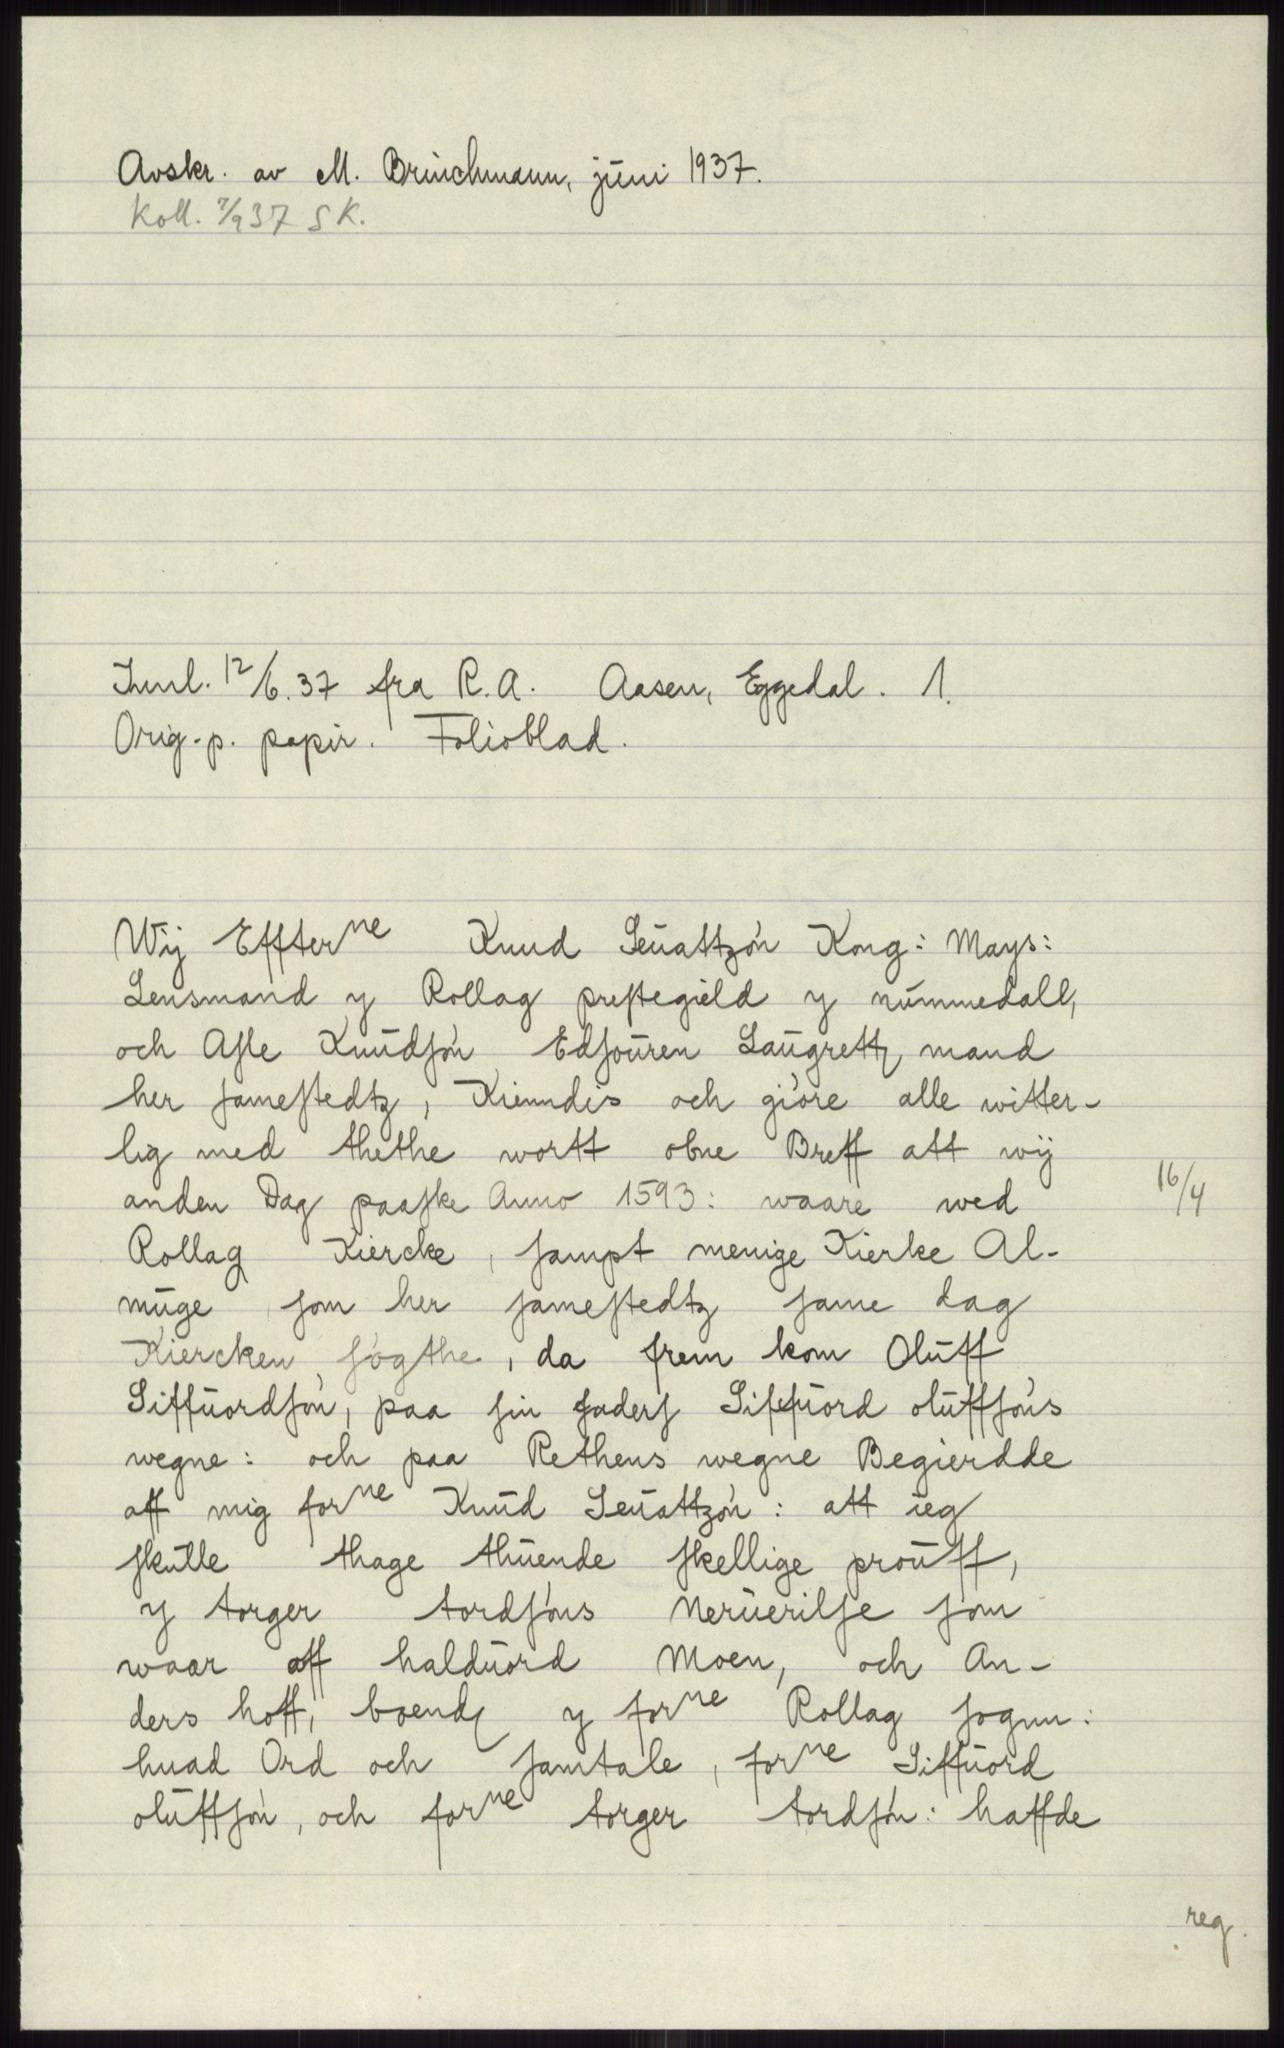 Avskr. av M. Brinchmann, juni 1937.
Koll. 7/9 37 S K.
Innl. 12/6.37 fra R.A. Aasen, Eggedal. 1.
Orig. p. papir. Folioblad.
Wij Effterne Knud Seuattzón Kong: Mays:
Lensmand y Rollag prestegield y nummedall,
och Asle Knudsón Edsouren Laugrettz mand
her samestedtz, Kienndis och gióre alle witter-
lig med thethe wortt obne Breff att wij
anden Dag paaske Anno 1593: waare wed
16/4
Rollag Kiercke, sampt menige Kierke Al-
muge som her samestedtz same dag
Kiercken sógthe, da frem kom Oluff
Siffuordsón, paa sin faders Siffuord oluffsóns
wegne: och paa Rethens wegne Begierdde
aff mig forne Knud Seuattzón: att ieg
skulle thage thuende skellige prouff,
y torger tordsóns Neruerilse som
waar aff halduord Moen, och An-
ders hoff, boend y forne Rollag sognn:
huad Ord och samtale, forne Siffuord
oluffsón, och forne torger tordsón: haffde
reg.